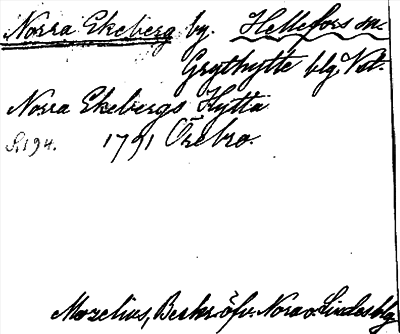 Norra Ekeberg by. Hellefors sn
Grythytte blg. Vst.
Norra Ekebergs Hytta
S. 194. 1791 Örebro.
Mozelius, Beskr. öfv. Nora o. Lindes blg